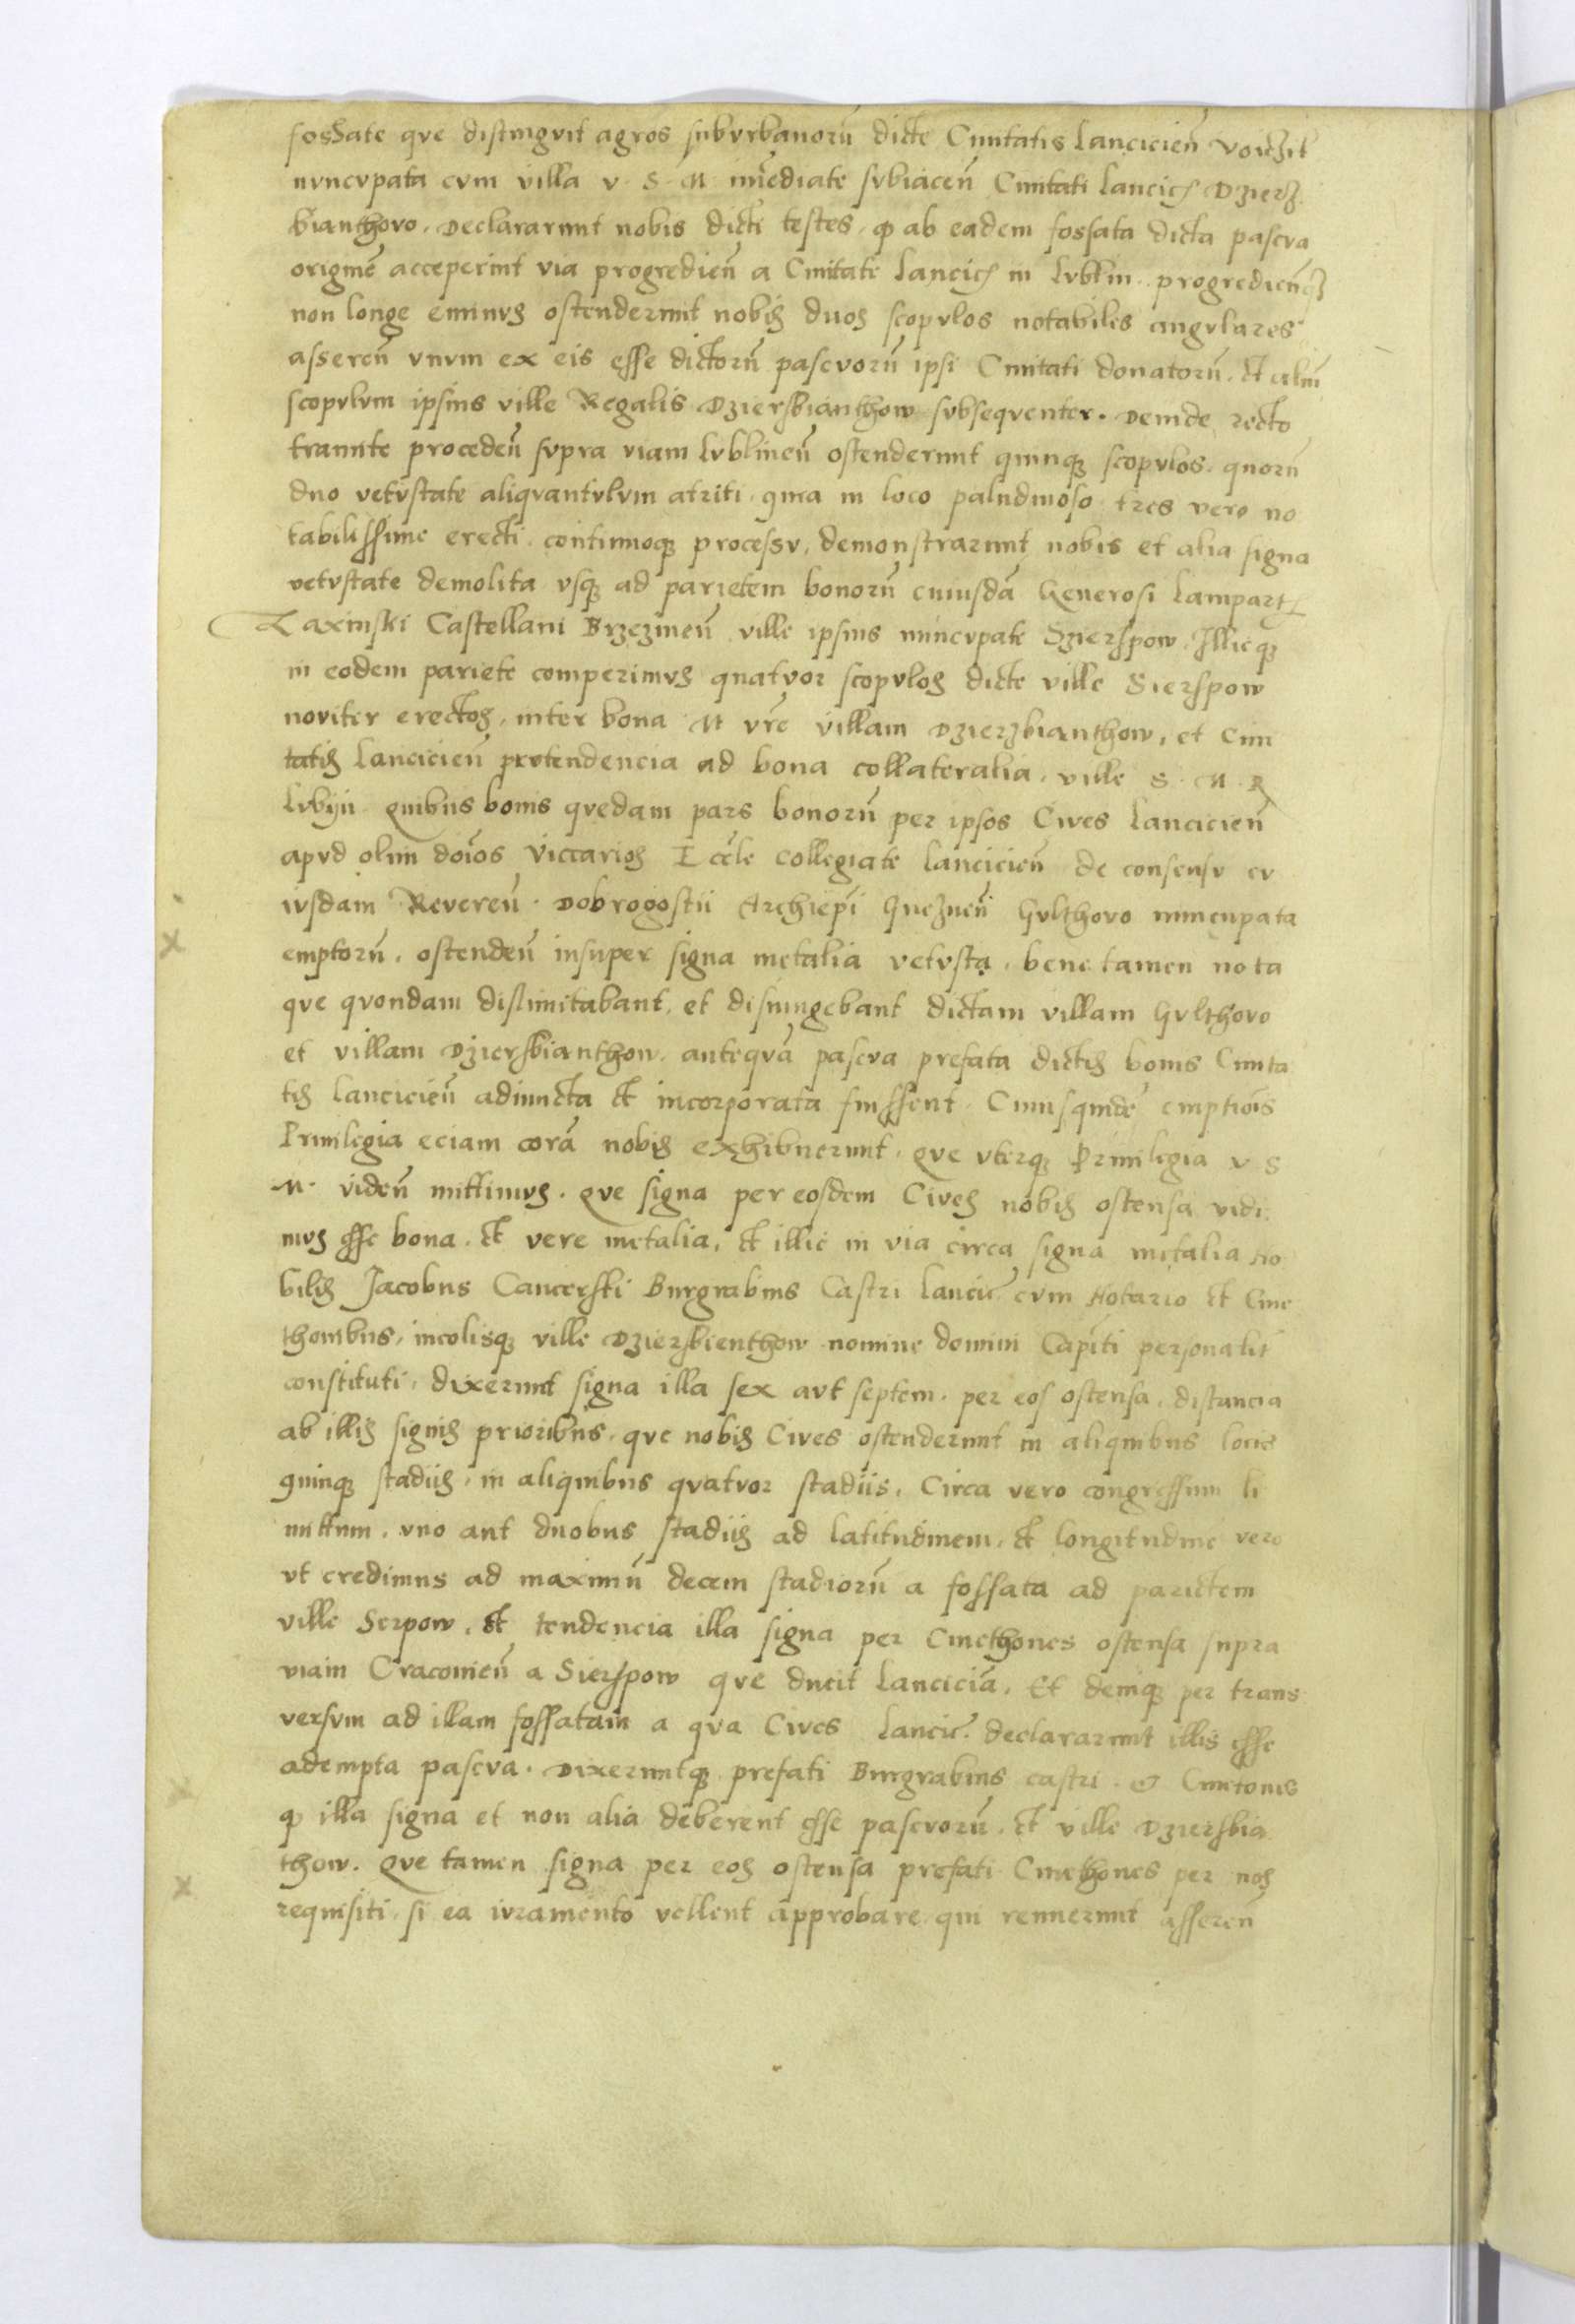 fosßate qve distingvit agros subvrbanorū dicte Ciuitatis Lancicień
nvncvpata cvm villa v. S. M. īmediate svbiaceń Ciuitati Lancicȝ Dzierz
bianthovo. Declararunt nobis dicti testes. ꝙ ab eadem fossata dicta pascva
originē acceperint via progredień a Ciuitate Lancicȝ in Lvblin.
non longe eminvs ostenderunt nobis dvos scopvlos notabiles angvlares
assereń vnvm ex eis esse dictorū pascvorū ipsi Ciuitati donatorū. et aliū
scopvlvm ipsius ville Regalis Dziersbianthow svbseqventer. Deinde recto
tramite procedeń svpra viam Lvblineń ostenderunt quinqȝ scopvlos. quorū
duo vetvstate aliqvantvlvm atriti. quia in loco paludinoso tres vero no
tabilissime erecti. continuoqȝ processv, demonstrarunt nobis et alia signa
vetvstate demolita vsqȝ ad parietem bonorū cuiusdā Generosi Lampartȝ
Laxinski Castellani Brzezineń ville ipsius nuncvpate Szierspow. Illicqȝ
in eodem pariete comperimvs quatvor scopvlos dicte ville Sierspow
noviter erectos, inter bona M vr̄e villam Dzierzbianthow, et Ciui
tatis Lancicień pretendencia ad bona collateralia. ville S. M. R
Lvbijń quibus bonis qvedam pars bonorū per ipsos Cives Lancicień
apvd olim doīos viccarios Eccl̄e Collegiate Lancicień de consensv cv
ivsdam Revereń. Dobrogostii Archiep̄i Gnezneń Gvlthovo nuncupata
emptorū. ostendeń insuper signa metalia vetvsta. bene tamen nota
qve qvondam dislimitabant. et disiungebant dictam villam Gvlthovo
et villam Dziersbianthow. anteqvā pascva prefata dictis bonis Ciuita
tis Lancicień adiuncta et incorporata fuissent. Cuiusquidē emptiōis
Priuilegia eciam corā nobis exhibuerunt. qve vtrqȝ Priuilegia v S
M. videń mittimvs. qve signa per eosdem Cives nobis ostensa vidi
mvs esse bona. et vere metalia, et illic in via circa signa metalia no
bilis Jacobus Cancerski Burgrabius Castri Lancic̄ cvm Notario et Cme
thonibus, incolisqȝ ville Dziersbienthow nomine domini Capīti personalit̄
constituti, dixerunt signa illa sex avt septem. per eos ostensa. distancia
ab illis signis prioribus. qve nobis Cives ostenderunt in aliquibus locis
quinqȝ stadiis, in aliquibus qvatvor stadiis. Circa vero congressum li
mittum. vno aut duobus stadiis ad latitudinem. et longitudine vero
vt credimus ad maximū decem stadiorū a fossata ad parietem
ville Serpow. et tendencia illa signa per Cmethones ostensa supra
viam Cracovień a Sierspow qve ducit Lanciciā. Et deniqȝ per trans
versvm ad illam fossatam a qva Cives Lancic̄. declararunt illis esse
adempta pascva. Dixeruntqȝ prefati Burgrabius castri. et Cmetones
ꝙ illa signa et non alia deberent esse pascvorū. et ville Dziersbia
thow. Qve tamen signa per eos ostensa prefati Cmethones per nos
requisiti. si ea ivramento vellent approbare. qui rennerunt assereń